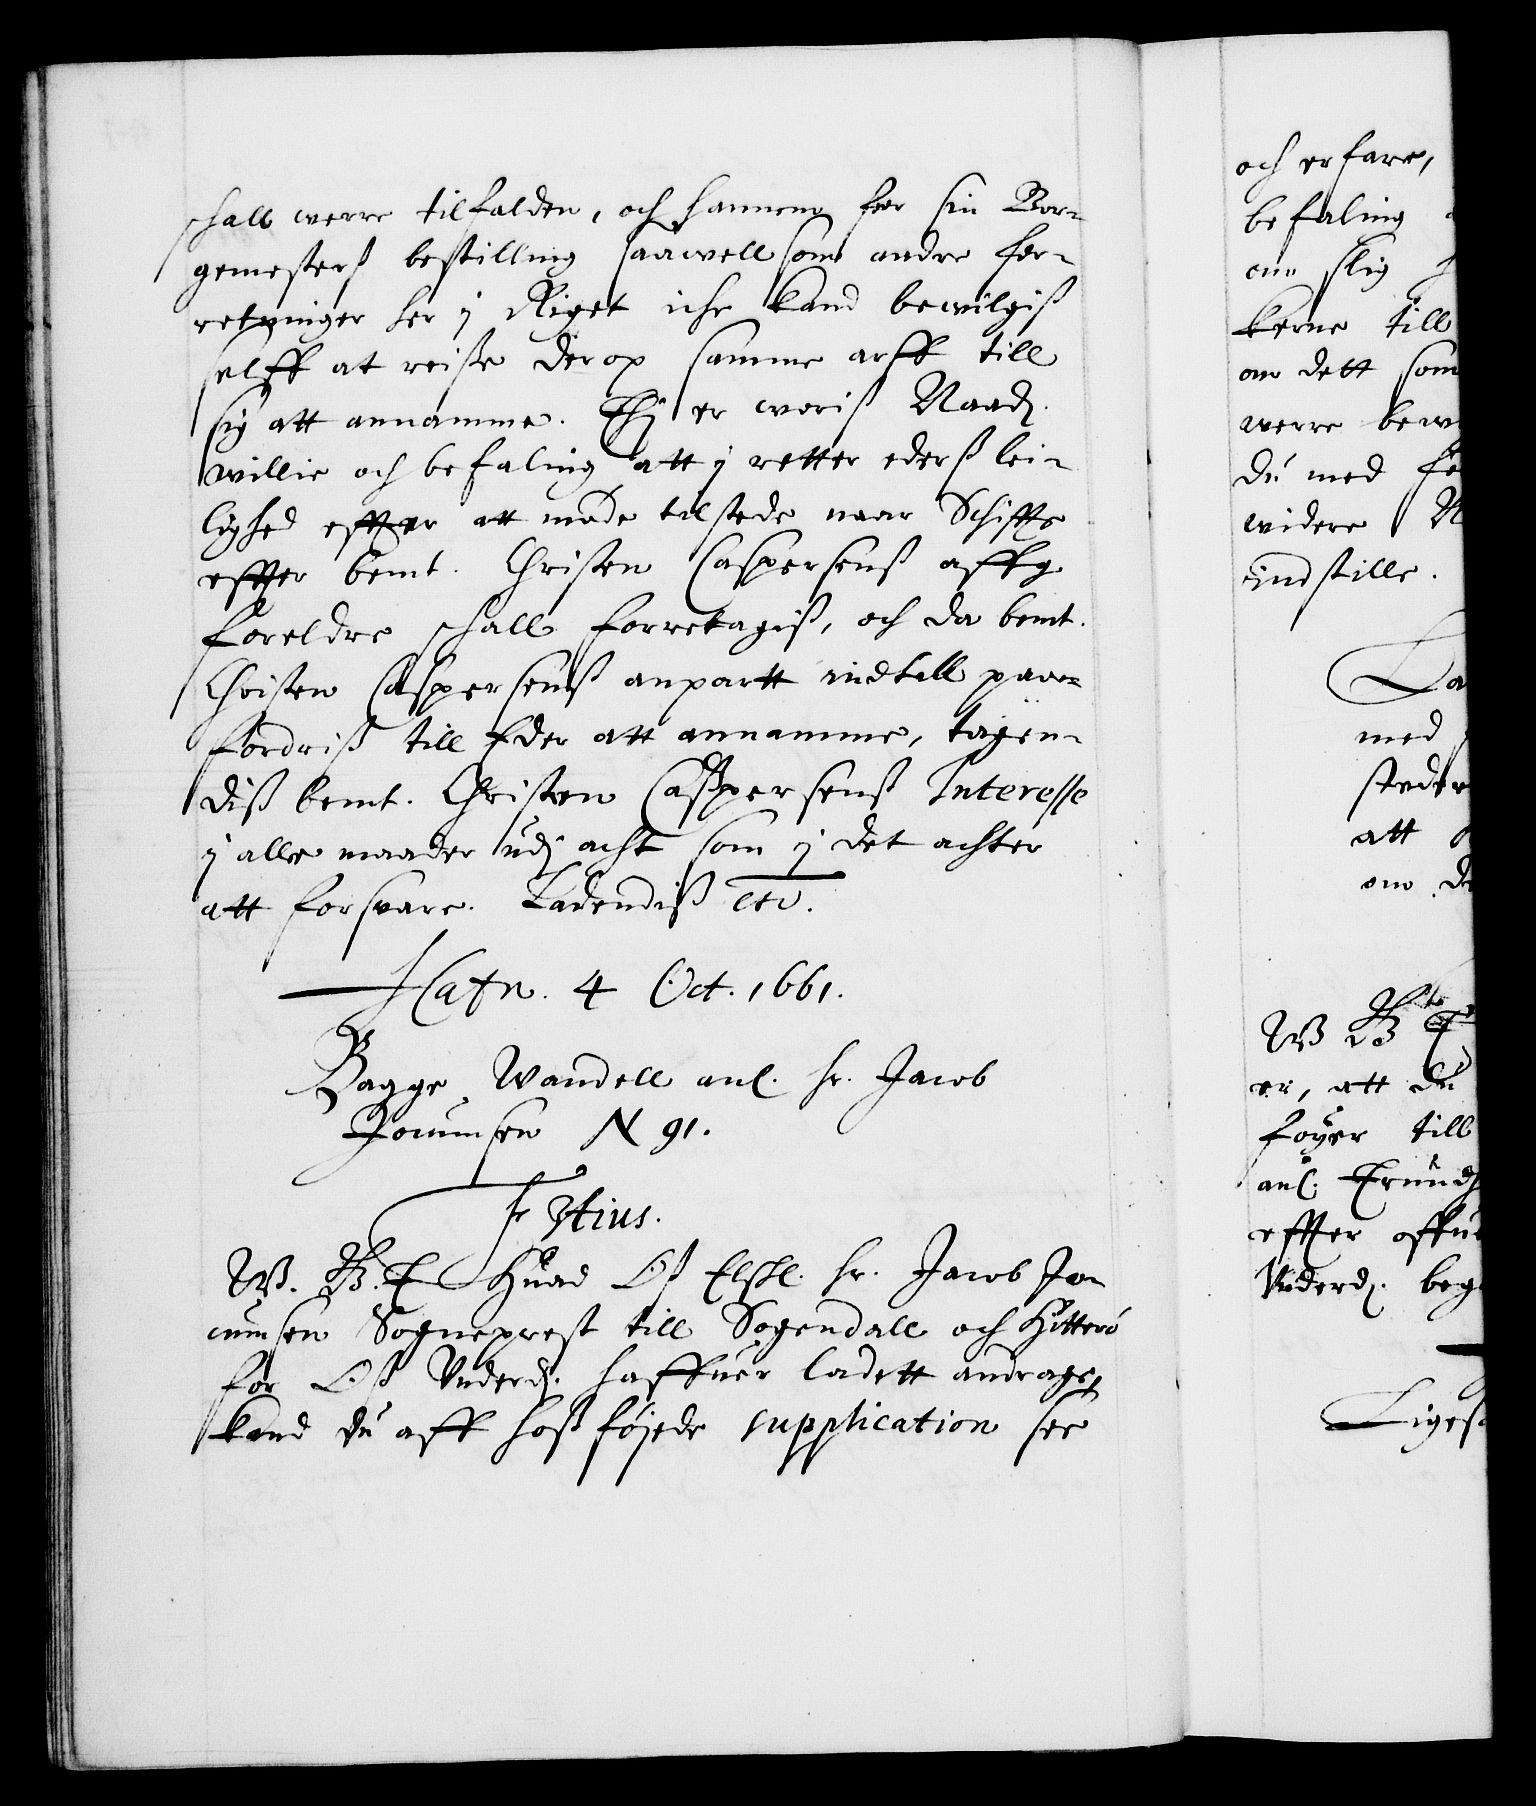 schall werre tilfalden, och hannem for sin Bor-
gemesterß bestilling saawell som andre for-
retninger her j Riget iche kand bewilgiß
selff at reise derop samme arff till
sig att annamme. Thj er woriß Naad.
willie och befaling att j retter ederß lei-
lighed effter att møde tilstede naar Schiffte
effter bemt. Christen Caspersenß affg.
foreldre schall forretagiß, och da bemt.
Christen Caspersenß anpartt indtill paa-
fordriß till Eder att annamme, tagen-
diß bemt. Christen Casspersenß Interesse
j alle maader udj acht som j det achter
att forsvare. Ladendiß etc.
Hafn. 4 Oct. 1661.
Bagge Wandell anl. hr. Jacob
Jonumsen N 91.
F 3tius.
W. G. T. Huad Oß Elskl. hr. Jacob Jo-
numsen Sogneprest till Sogendall och Hitterø
for Oß Underd. haffuer ladett andrage,
kand du aff hoßføjede supplication see
och erfare,
befaling
slig
kerne till
om dett som
werre bew
du med
widere
indstille.
La
med
steder
att
om de
er, att du
føyer till
anl.
effter
Underd. beg
Ligeso